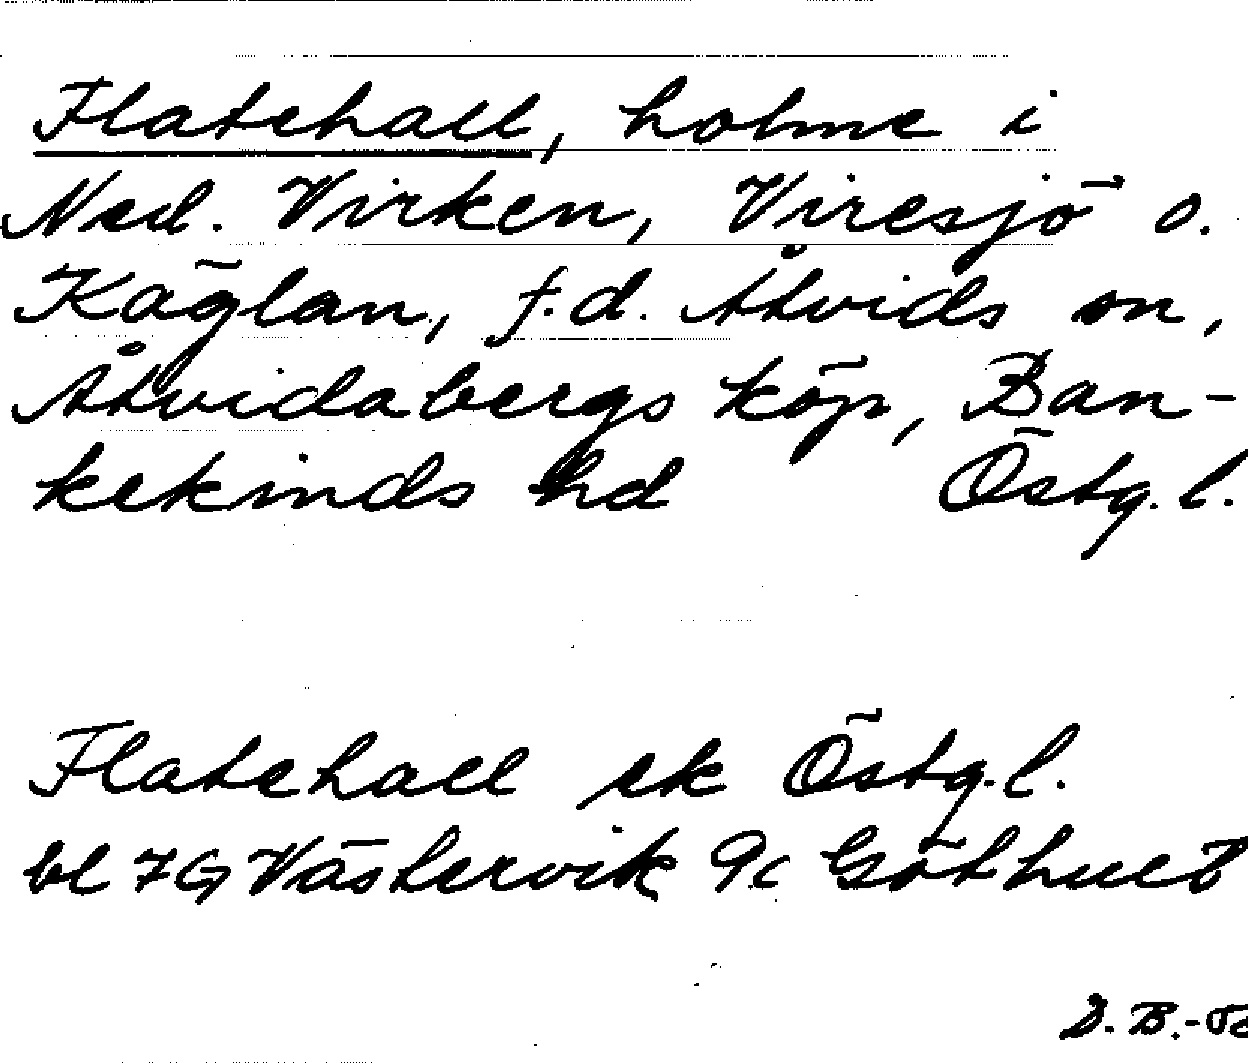 Flatehall, holme i
Ned. Virken, Viresjö o.
Käglan, f.d. Åtvids sn,
Åtvidabergs köp, Ban-
kekinds hd Östg.l.
Flatehall ek Östg.l.
bl 7G Västervik 9c Göthult
S.B.-